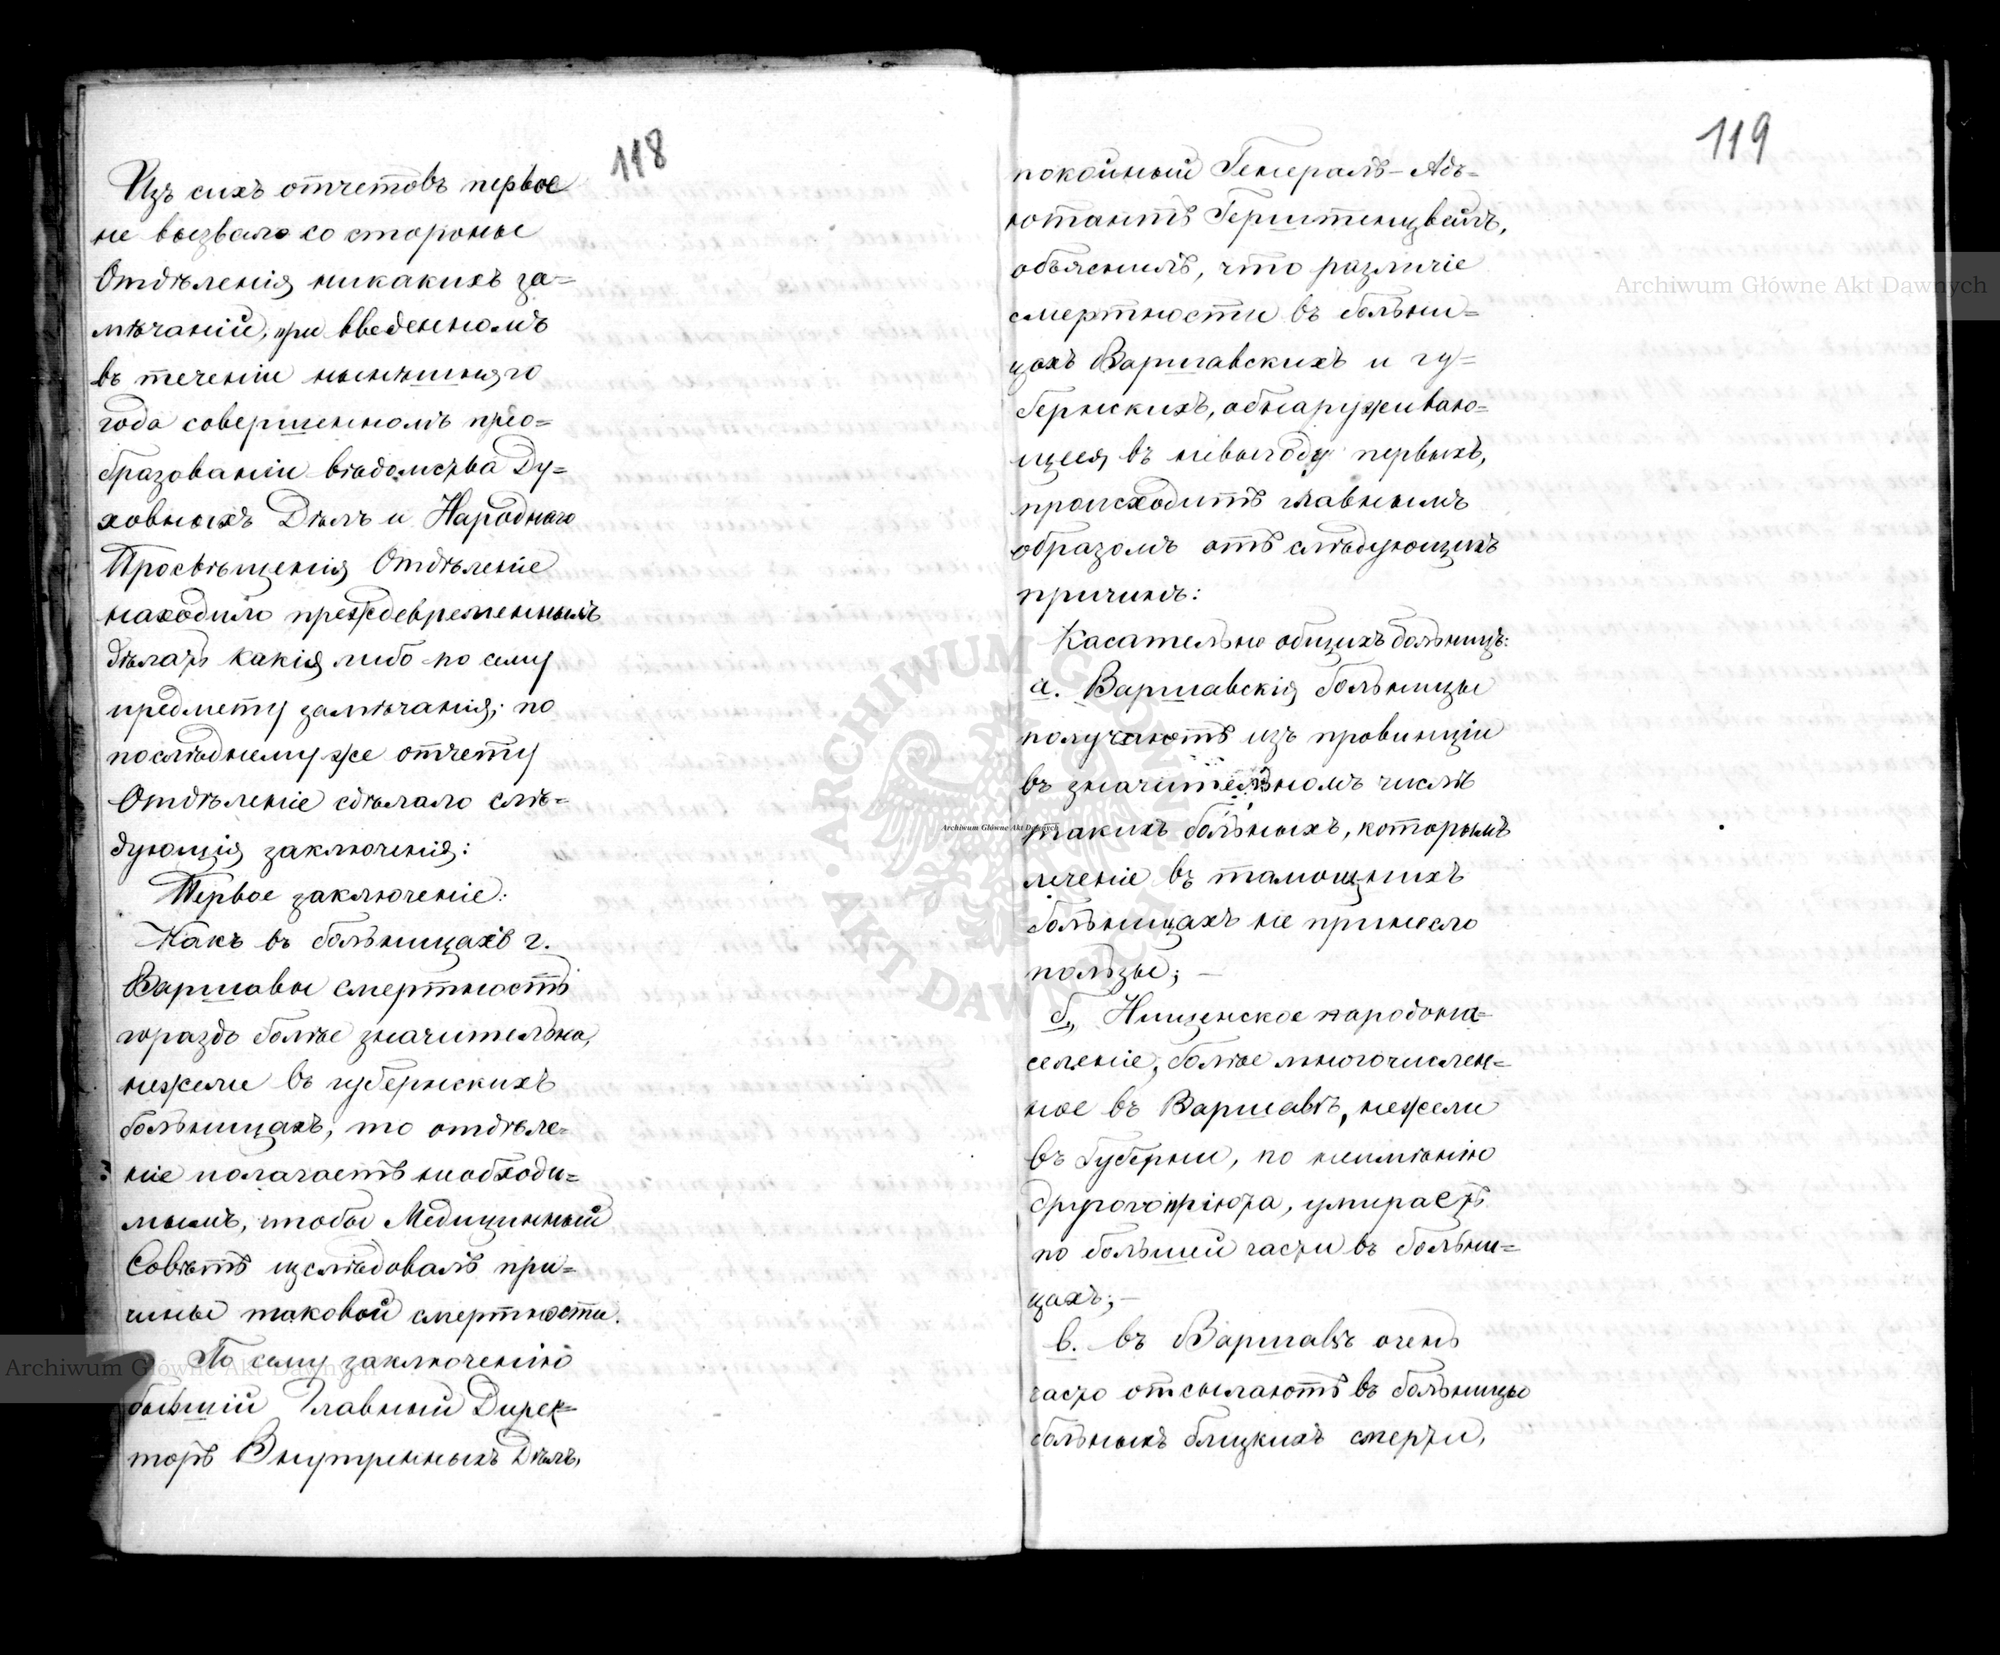 118
Изъ сихъ отчетовъ первое
не вызвало со стороны
Отдѣленія никакихъ за=
мѣчаній, при введенномъ
въ теченіи нынѣшняго
года совершенномъ прео=
бразованіи вѣдомства Ду=
ховныхъ Дѣлъ и Народнаго
Просвѣщенія Отдѣленіе
находило преждевременнымъ
дѣлать какія либо по сему
предмету замѣчанія; по
послѣднему же отчету
Отдѣленіе сдѣлало слѣ=
дующія заключенія:
Первое заключеніе:
Какъ въ больницахъ г.
Варшавы смертность
гораздо болѣе значительна,
нежели въ губернскихъ
больницахъ, то отдѣле=
ніе полагаетъ необходи=
мымъ, чтобы Медицинный
Совѣтъ изслѣдовалъ при=
чины таковой смертности.
По сему заключенію
бывшій Главный Дирек=
торъ Внутреннихъ Дѣлъ,
119
покойный Генералъ-Адъ=
ютантъ Герштенцвейгъ,
объяснилъ, что различіе
смертности въ больни=
цахъ Варшавскихъ и гу=
бернскихъ, обнаруживаю=
щееся въ невыгоду первыхъ,
происходитъ главнымъ
образомъ отъ слѣдующихъ
причинъ:
Касательно общихъ больницъ:
а. Варшавскія больницы
получаютъ изъ провинціи
въ значительномъ числѣ
такихъ больныхъ, которымъ
леченіе въ тамошнихъ
больницахъ не принесло
пользы; —
б., Нищенское народона=
селеніе, болѣе многочислен=
ное въ Варшавѣ, нежели
въ Губерніи, по неимѣнію
другого пріюта, умираетъ
по большей части въ больни=
цахъ; —
в. въ Варшавѣ очень
часто отсылаютъ въ больницы
больныхъ близкихъ смерти,
Archiwum Główne Akt Dawnych
Archiwum Główne Akt Dawnych
Archiwum Główne Akt Dawnych
ARCHIWUM GŁÓWNE AKT DAWNYCH